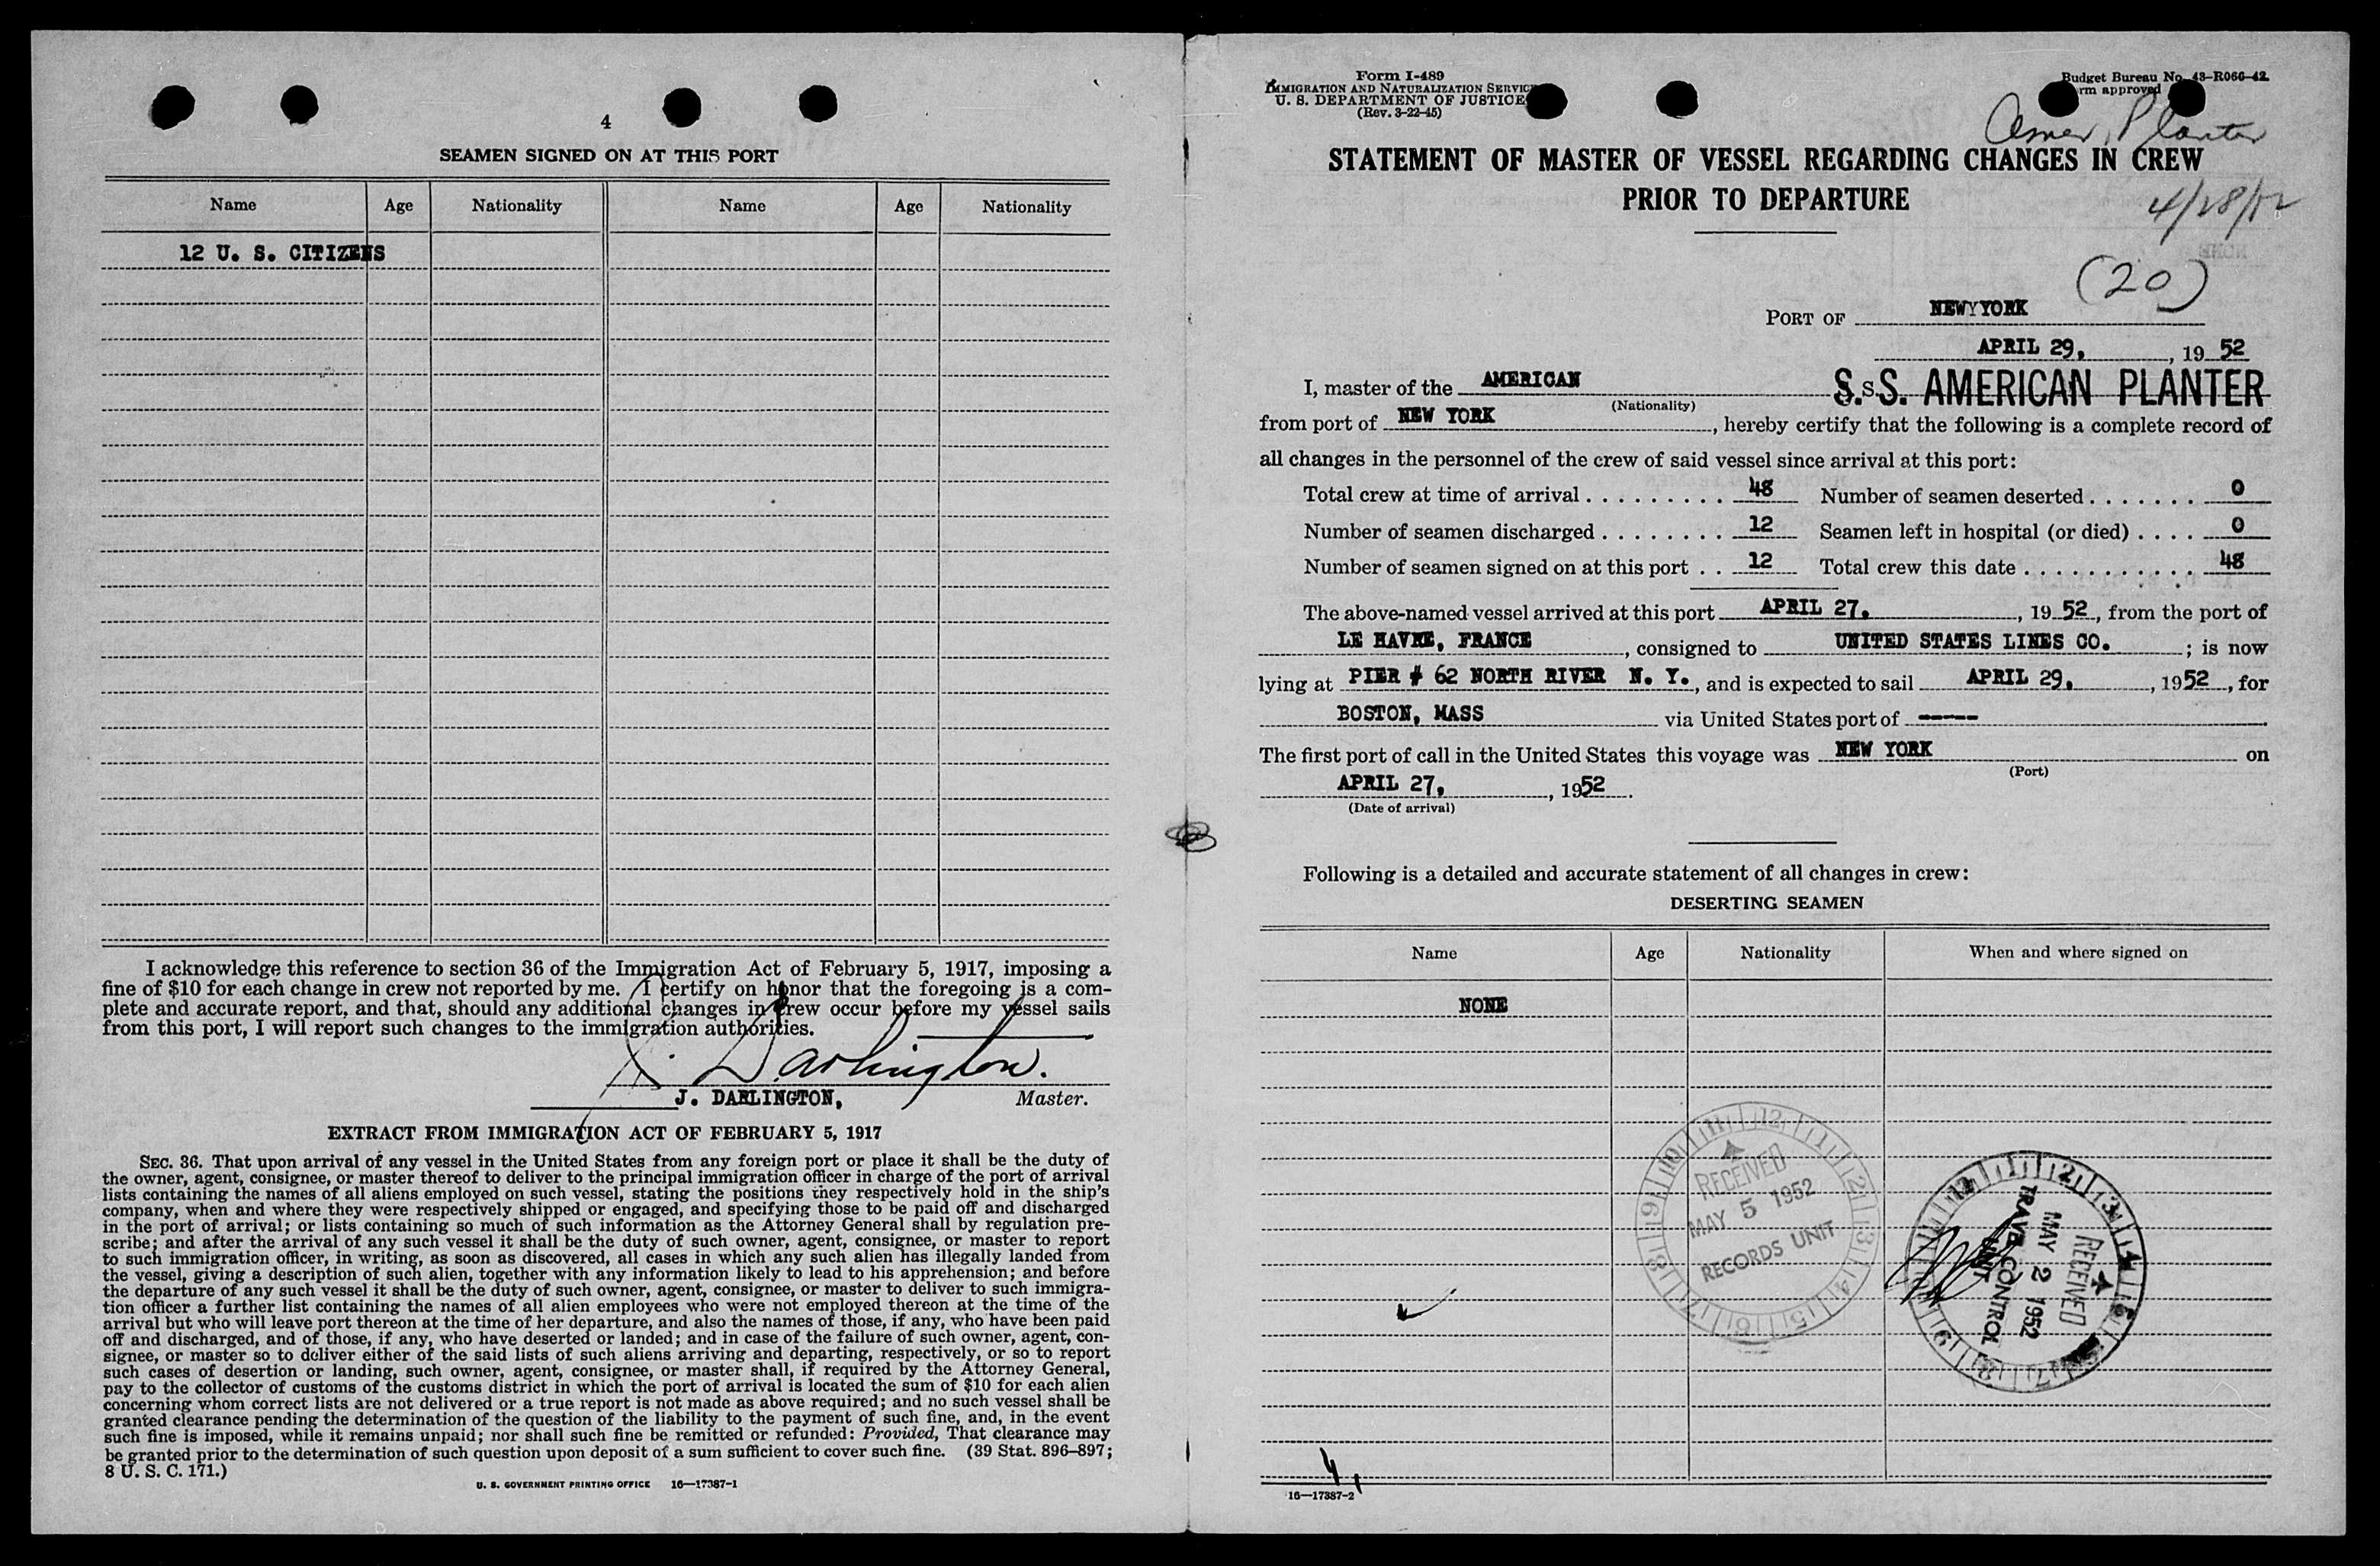 4
SEAMEN SIGNED ON AT THIS PORT
Name Age Nationality Name Age Nationality
12 U. S. CITIZENS
I acknowledge this reference to section 36 of the Immigration Act of February 5, 1917, imposing a
fine of $10 for each change in crew not reported by me. I certify on honor that the foregoing is a com-
plete and accurate report, and that, should any additional changes in crew occur before my vessel sails
from this port, I will report such changes to the immigration authorities.
J. Darlington.
J. DARLINGTON, Master.
EXTRACT FROM IMMIGRATION ACT OF FEBRUARY 5, 1917
SEC. 36. That upon arrival of any vessel in the United States from any foreign port or place it shall be the duty of
the owner, agent, consignee, or master thereof to deliver to the principal immigration officer in charge of the port of arrival
lists containing the names of all aliens employed on such vessel, stating the positions they respectively hold in the ship's
company, when and where they were respectively shipped or engaged, and specifying those to be paid off and discharged
in the port of arrival; or lists containing so much of such information as the Attorney General shall by regulation pre-
scribe; and after the arrival of any such vessel it shall be the duty of such owner, agent, consignee, or master to report
to such immigration officer, in writing, as soon as discovered, all cases in which any such alien has illegally landed from
the vessel, giving a description of such alien, together with any information likely to lead to his apprehension; and before
the departure of any such vessel it shall be the duty of such owner, agent, consignee, or master to deliver to such immigra-
tion officer a further list containing the names of all alien employees who were not employed thereon at the time of the
arrival but who will leave port thereon at the time of her departure, and also the names of those, if any, who have been paid
off and discharged, and of those, if any, who have deserted or landed; and in case of the failure of such owner, agent, con-
signee, or master so to deliver either of the said lists of such aliens arriving and departing, respectively, or so to report
such cases of desertion or landing, such owner, agent, consignee, or master shall, if required by the Attorney General,
pay to the collector of customs of the customs district in which the port of arrival is located the sum of $10 for each alien
concerning whom correct lists are not delivered or a true report is not made as above required; and no such vessel shall be
granted clearance pending the determination of the question of the liability to the payment of such fine, and, in the event
such fine is imposed, while it remains unpaid; nor shall such fine be remitted or refunded: Provided, That clearance may
be granted prior to the determination of such question upon deposit of a sum sufficient to cover such fine. (39 Stat. 896–897;
8 U. S. C. 171.)
U. S. GOVERNMENT PRINTING OFFICE 16—17387-1
Form I-489
IMMIGRATION AND NATURALIZATION SERVICE
U. S. DEPARTMENT OF JUSTICE
(Rev. 3-22-45)
Budget Bureau No. 43–R066–42.
rm approved
Amer. Planter
STATEMENT OF MASTER OF VESSEL REGARDING CHANGES IN CREW
PRIOR TO DEPARTURE
4/28/52
(20)
PORT OF NEWYYORK
APRIL 29, , 19 52
I, master of the AMERICAN S.S. S.S. AMERICAN PLANTER
(Nationality)
from port of NEW YORK , hereby certify that the following is a complete record of
all changes in the personnel of the crew of said vessel since arrival at this port:
Total crew at time of arrival . . . . . . . . . 48 Number of seamen deserted . . . . . . . 0
Number of seamen discharged . . . . . . . . 12 Seamen left in hospital (or died) . . . . 0
Number of seamen signed on at this port . . 12 Total crew this date . . . . . . . . . . . 48
The above-named vessel arrived at this port APRIL 27, , 19 52, from the port of
LE HAVRE, FRANCE , consigned to UNITED STATES LINES CO. ; is now
lying at PIER # 62 NORTH RIVER N. Y., and is expected to sail APRIL 29, , 1952, for
BOSTON, MASS via United States port of -----
The first port of call in the United States this voyage was NEW YORK on
(Port)
APRIL 27, , 1952.
(Date of arrival)
Following is a detailed and accurate statement of all changes in crew:
DESERTING SEAMEN
Name Age Nationality When and where signed on
NONE
RECEIVED
MAY 5 1952
RECORDS UNIT
RECEIVED
MAY 2 1952
TRAVEL CONTROL
UNIT
4,
16—17387-2